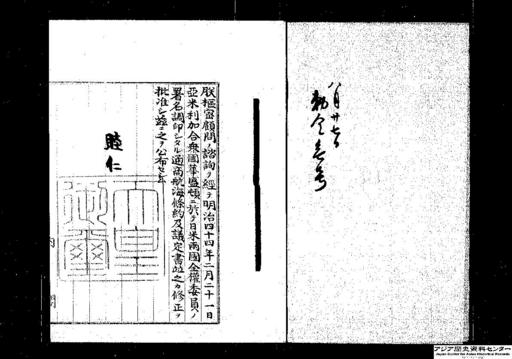 八月廿七日
勅令無号
朕枢密顧問ノ諮詢ヲ経テ明治四十四年二月二十一日
亜米利加合衆國華盛頓ニ於テ日米両國全権委員ノ
署名調印シタル通商航海條約及議定書並之カ修正ヲ
批准シ茲ニ之ヲ公布セシム
睦仁
天皇御璽
内閣
アジア歴史資料センター
Japan Center for Asian Historical Records